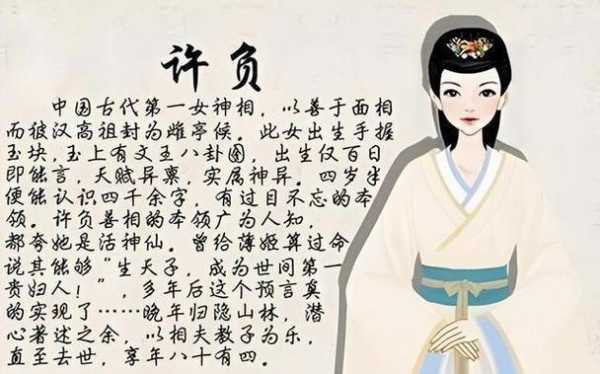 许负
中国古代第一女神相，以善于面相
而被汉高祖封为雌亭候。此女出生手握
玉块，玉上有文王八卦图，出生仅百日
即能言，天赋异禀，实属神异。四岁半
便能认识四千余字，有过目不忘的本
领。许负善相的本领广为人知，
都夸她是活神仙。曾给薄姬算过命
说其能够“生天子，成为世间第一
贵妇人！”，多年后这个预言真
的实现了……晚年归隐山林，潜
心著述之余，以相夫教子为乐，
直至去世，享年八十有四。